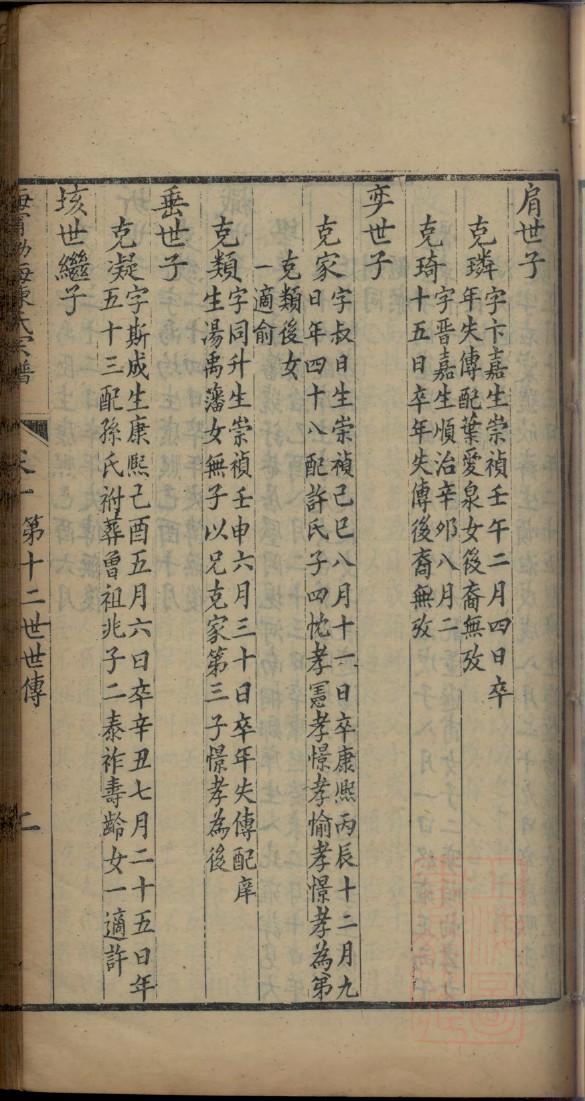 肩世子
克璘字卞嘉生崇禎壬午二月四日卒
年失傳配葉愛泉女後裔無攷
克琦字晋嘉生順治辛夘八月二
十五日卒年失傳後裔無攷
克家字叔日生崇禎己巳八月十一日卒康熙丙辰十二月九
日年四十八配許氏子四忱孝憲孝憬孝愉孝憬孝為第
克類後女
一適俞
克類字同升生崇禎壬申六月三十日卒年失傳配庠
生湯禹藩女無子以兄克家第三子憬孝為後
垂世子
克凝字斯成生康熙己酉五月六日卒辛丑七月二十五日年
五十三配孫氏祔葬曾祖兆子二泰祚壽齡女一適許
垓世繼子
海寧渤海陳氏宗譜
第十二世世傳